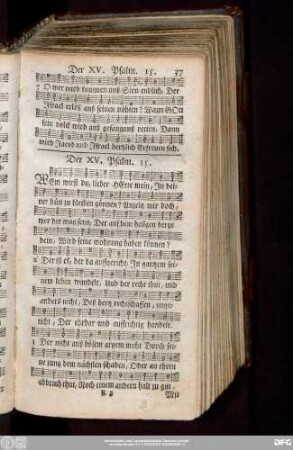 Der XV. Psalm. 15. 37
7 O wer wird kommen auß Sion endlich, Der
Israel erlöß auß seinen nöthen? Wann GOtt
sein volck wird auß gefängnuß retten, Dann
wird Jacob und Israel hertzlich Erfreuen sich.
Der XV. Psalm. 15.
WEm wirst du, lieber HErre mein, In dei-
ner hütt zu bleiben gönnen? Anzeig mir doch,
wer der mag seyn, Der auf dem heilgen berge
dein, Wird seine wohnung haben können?
2 Der ist es, der da aufgericht, In gantzem sei-
nem leben wandelt, Und der recht thut, und
anders nicht, Deß hertz rechtschaffen,
nicht, Der ehrbar und auffrichtig handelt.
3 Der nicht auß bösem argem muht Durch sei-
ne zung dem nächsten schaden, Oder an ehren
abbruch thut, Noch einem andern halt zu gut,
Mit